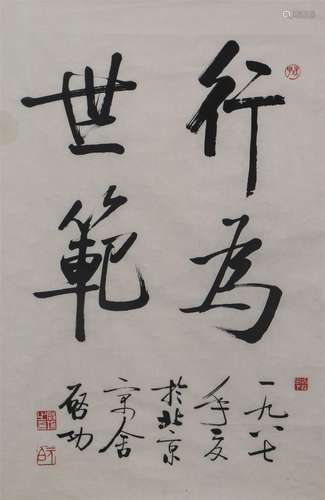 行為
世範
一九八七
年夏
於北京
寓舍
启功